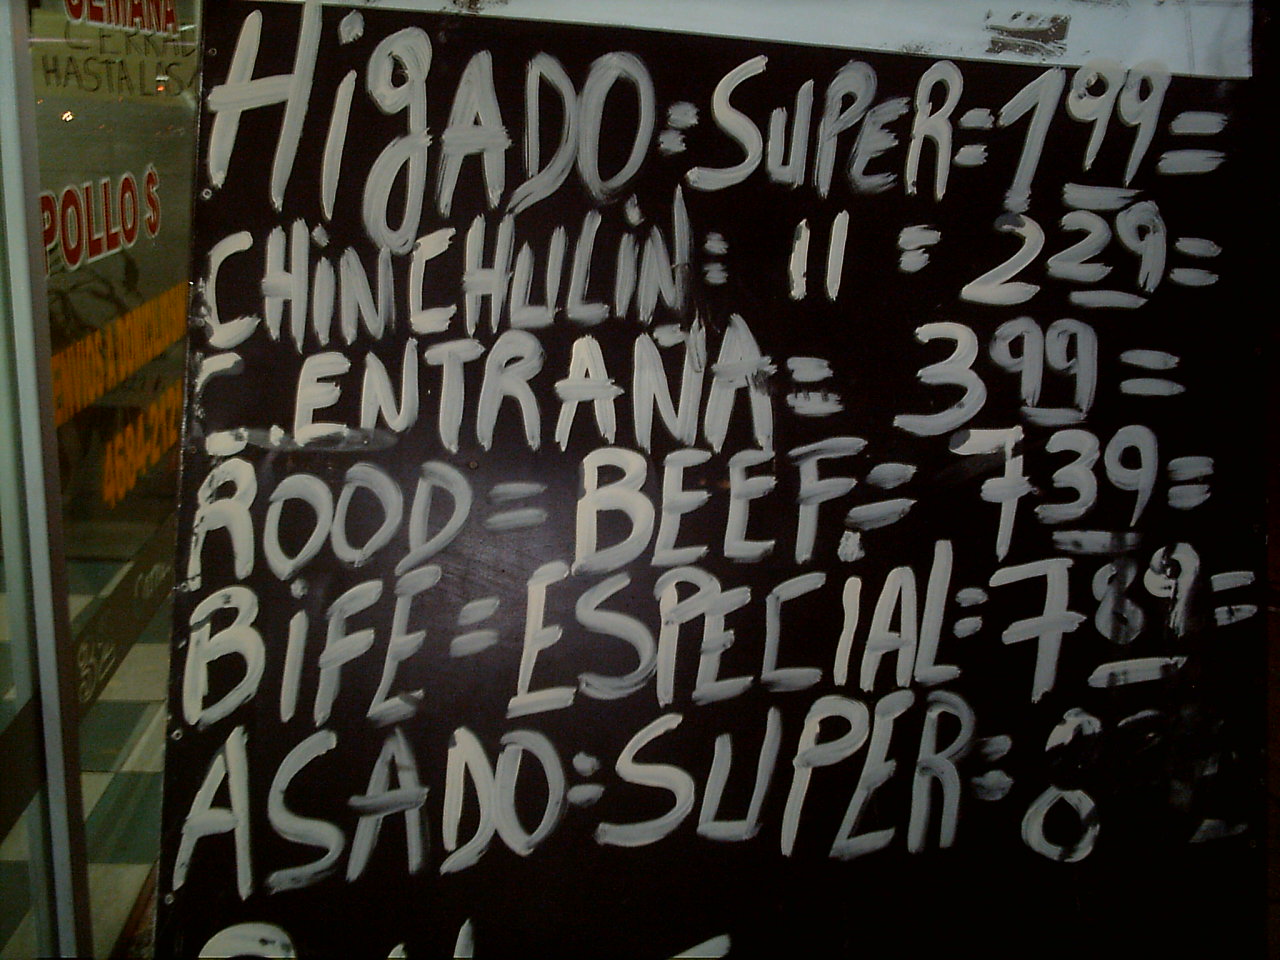 SEMANA
HASTA LAS
POLLO $
HiGADO = SUPER = 1 99 =
CHiNCHULiN = 11 = 2 29 =
ENTRAÑA = 3 99 =
ROOD = BEEF = 7 39 =
BiFE = ESPECIAL = 7 89 =
ASADO = SUPER =